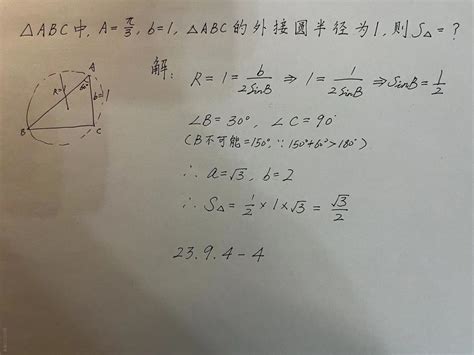 △ABC中, A=π/3, b=1, △ABC的外接圆半径为1, 则S△=?
解: R=1=b/2SinB ⇒ 1=1/2SinB ⇒ SinB=1/2
∠B=30°, ∠C=90°
(B不可能=150°, ∵150°+60°>180°)
∴ a=√3, b=2
∴ S△=1/2×1×√3=√3/2
23.9.4-4
A
R=1
60°
b=1
B
C